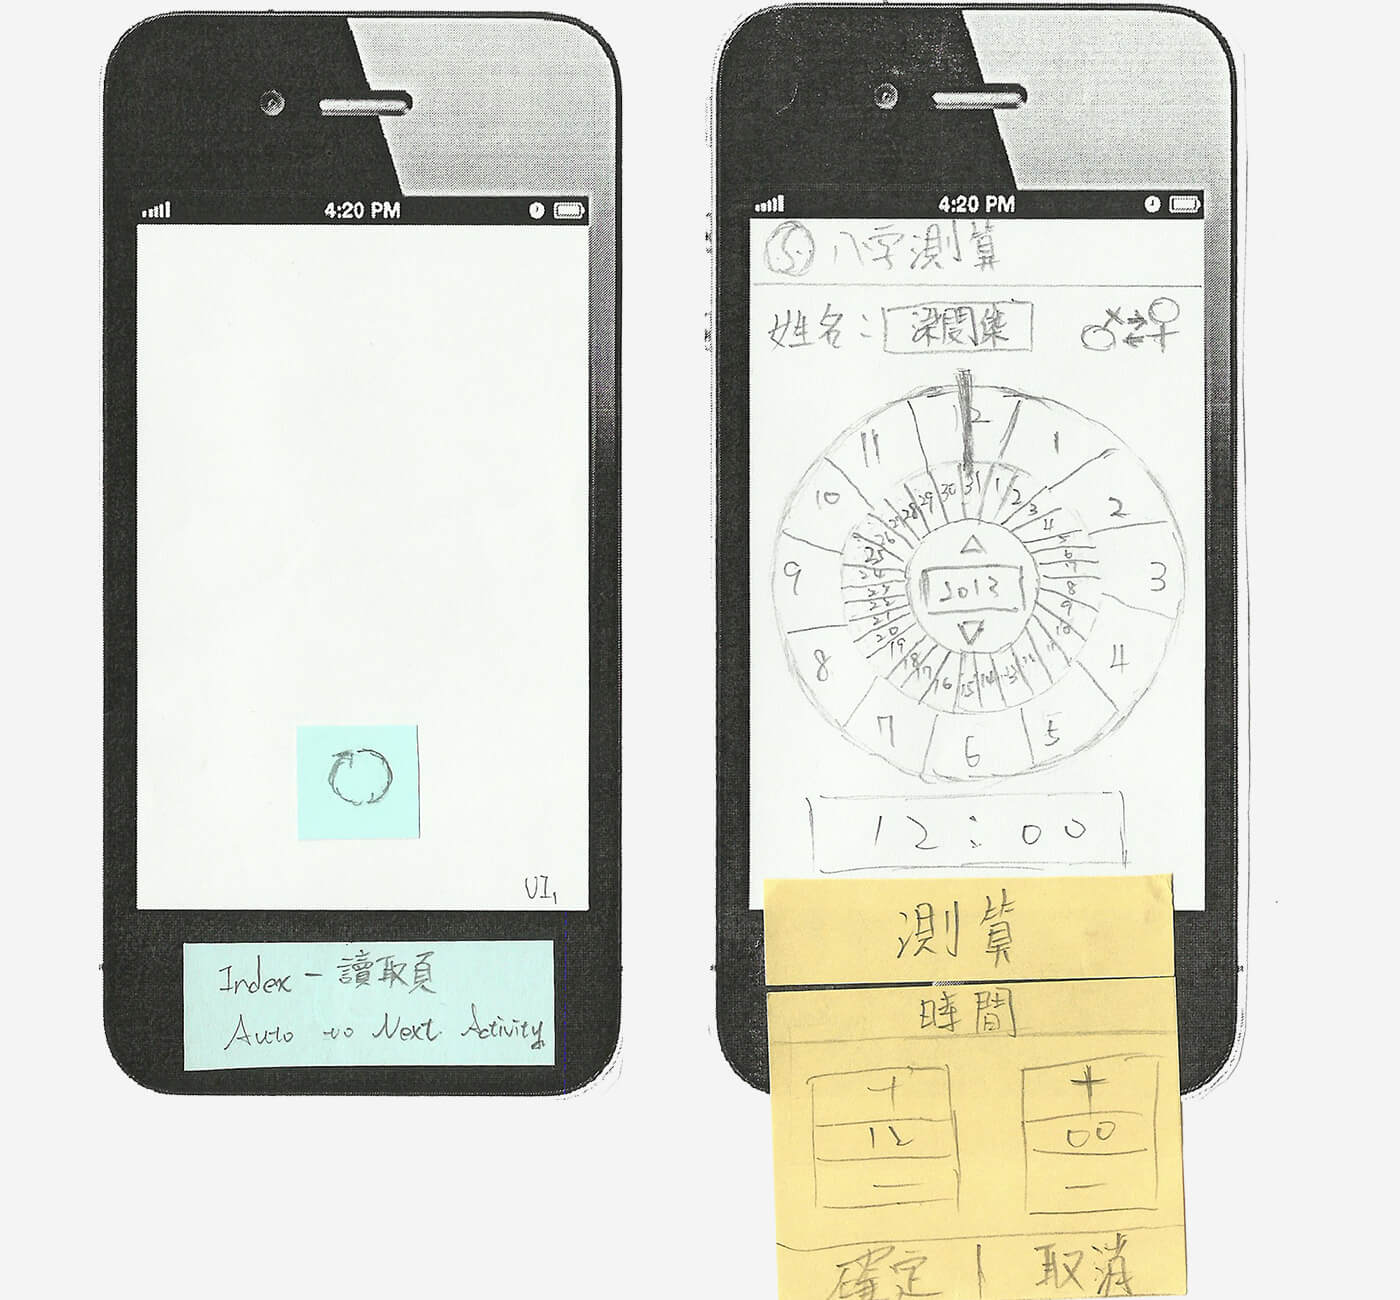 4:20 PM
UI1
Index - 讀取頁
Auto to Next Activity
4:20 PM
八字測算
姓名:
12
1
2
3
4
5
6
7
8
9
10
11
31
1
2
3
4
6
7
8
9
10
13
14
15
16
17
18
19
20
25
26
27
28
29
30
2013
12:00
測算
時間
+ +
12 00
- -
確定 | 取消